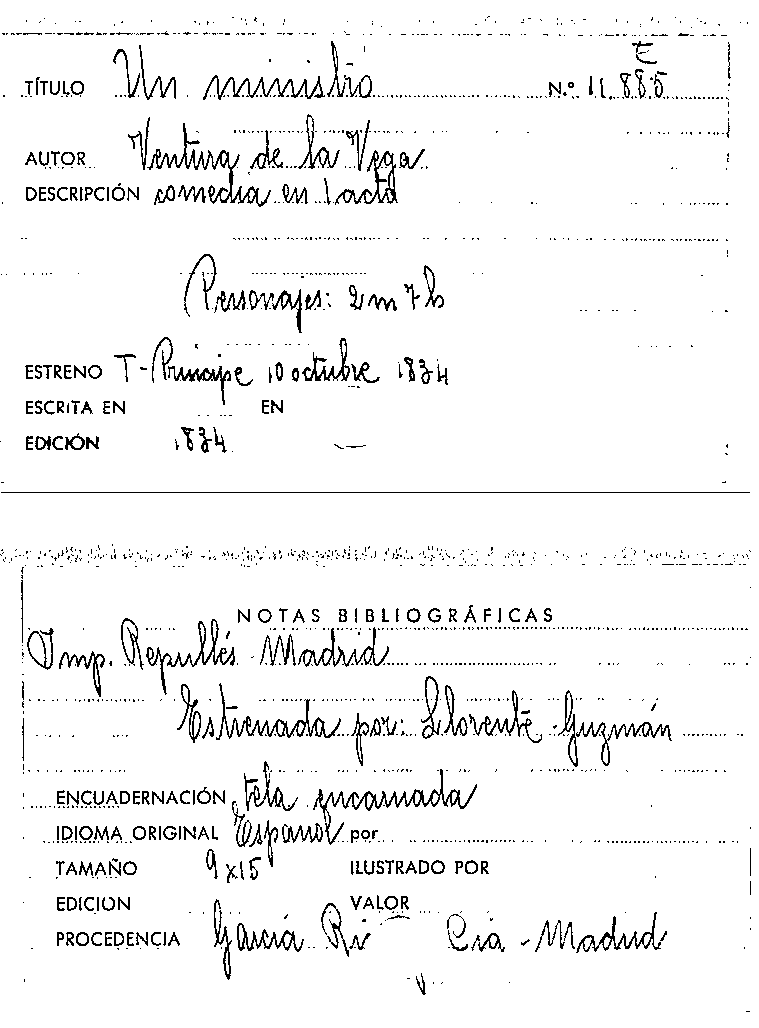 E
TÍTULO Un ministro N.º 11.885
AUTOR Ventura de la Vega
DESCRIPCIÓN comedia en 1 acto
Personajes: 2 m 7 h
ESTRENO T-Principe 10 octubre 1834
ESCRITA EN EN
EDICIÓN 1834 —
NOTAS BIBLIOGRÁFICAS
Imp. Repullés Madrid
Estrenada por: Llorente-Guzmán
ENCUADERNACIÓN tela encarnada
IDIOMA ORIGINAL Español por
TAMAÑO 9x15 ILUSTRADO POR
EDICION VALOR
PROCEDENCIA García Ri Cia - Madrid